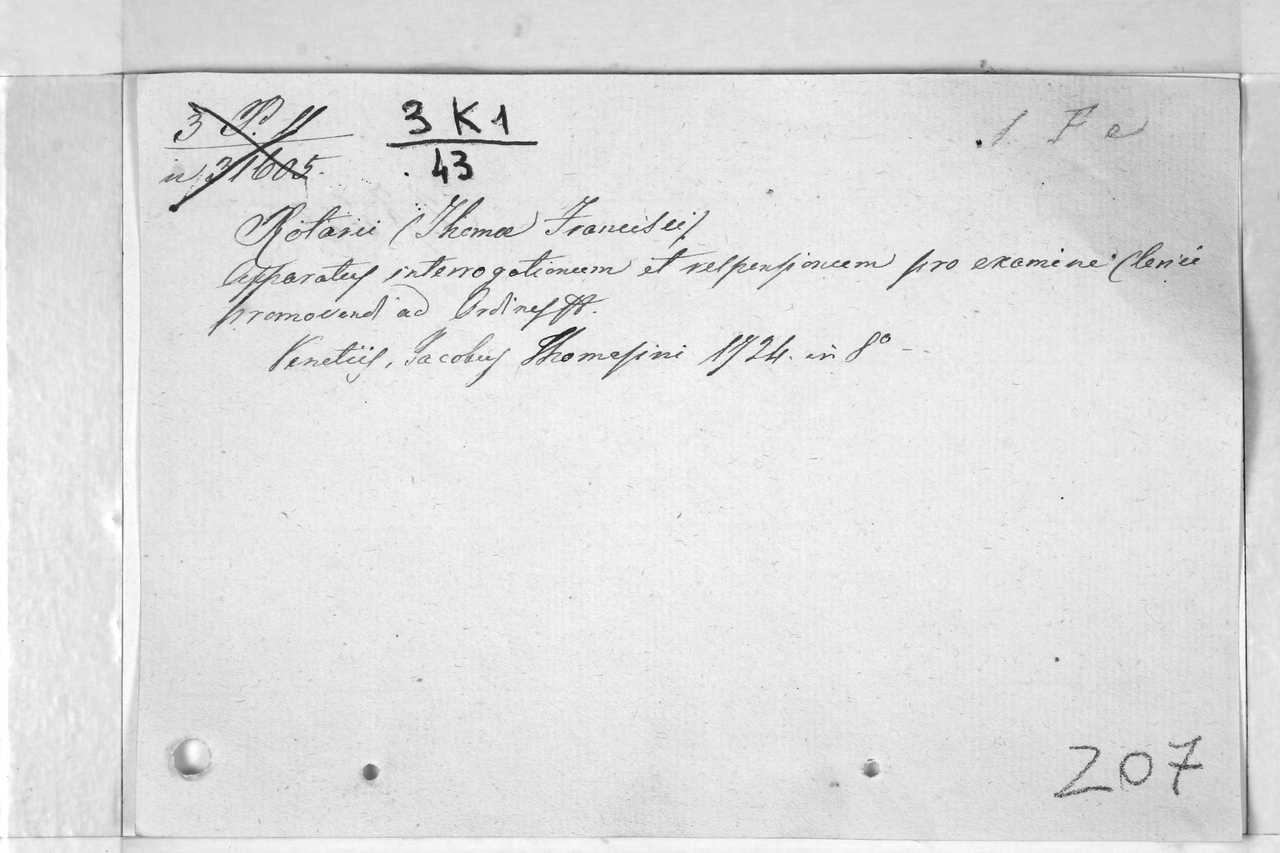 3 P. 11 3 K 1 1 F e
n 31605. 43
Rotarii (Thomæ Francisci)
Apparatus interrogationum et responsionum pro examine Clerici
promovendi ad Ordines
Venetiis, Jacobus Thomasini 1724. in 8º
207